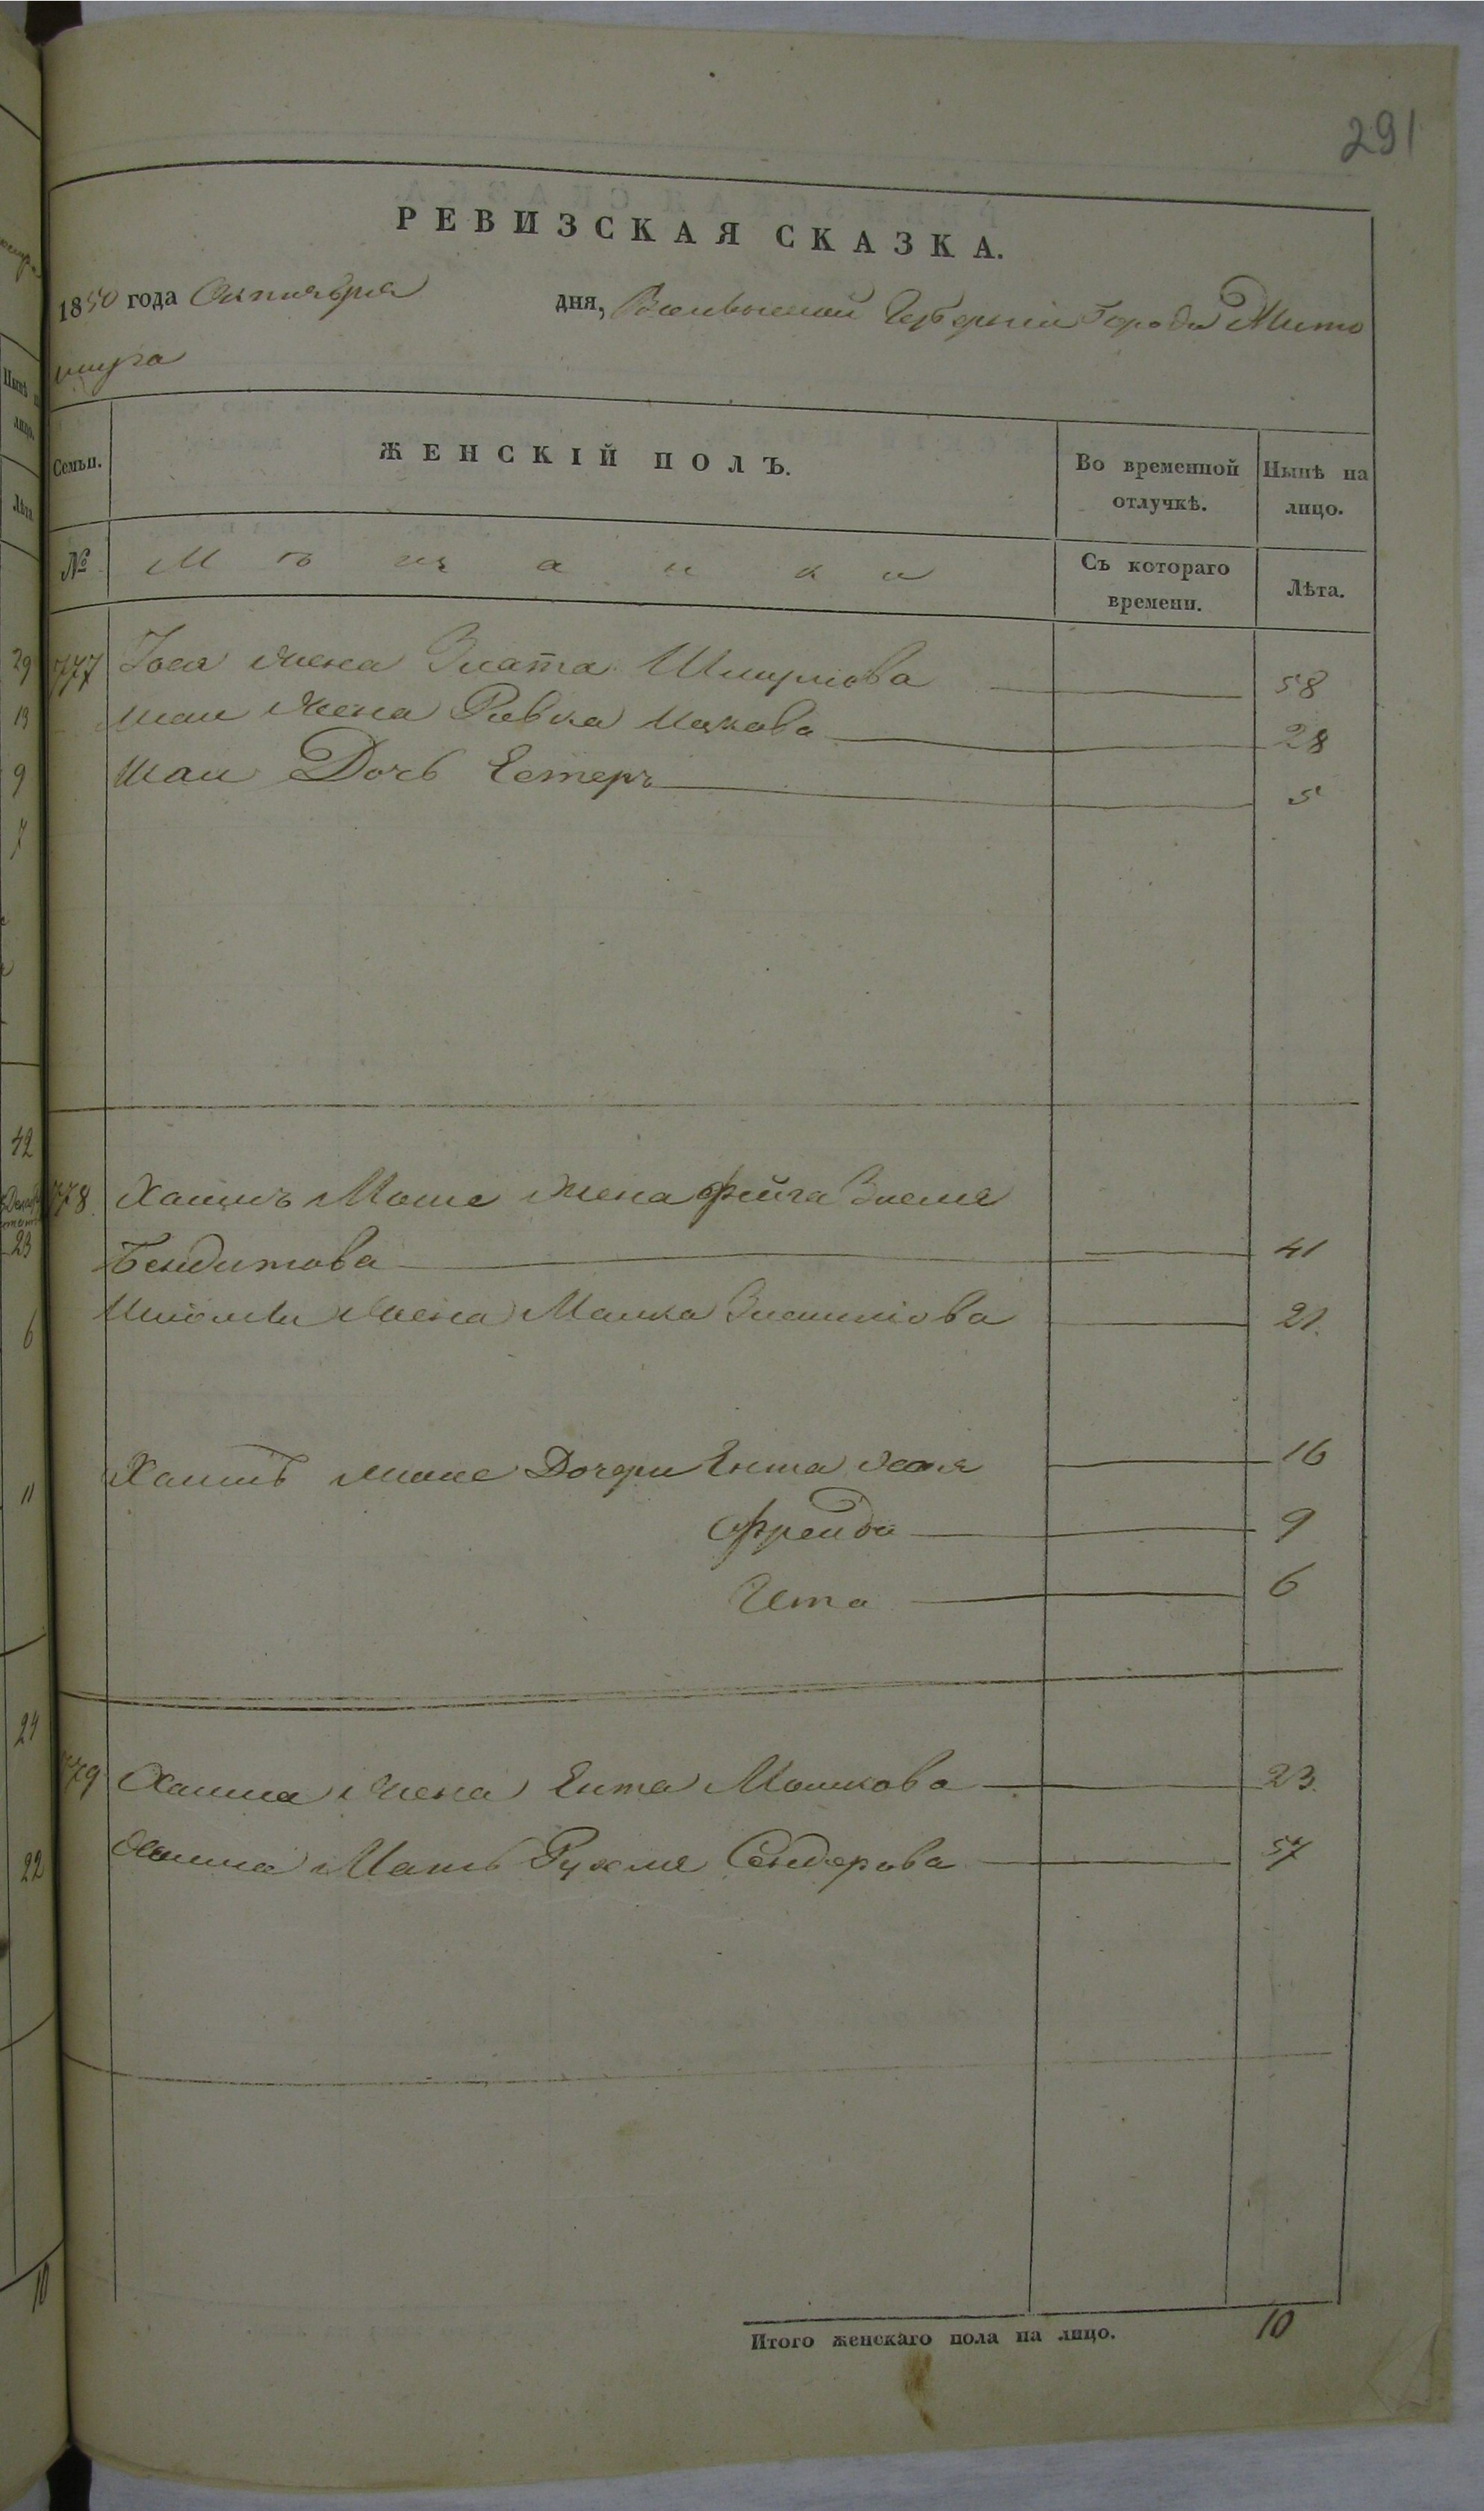 291
РЕВИЗСКАЯ СКАЗКА.
1850 года Октября дня, Волынской Губерніи Города Жито
мира
Семьи. ЖЕНСКІЙ ПОЛЪ. Во временной отлучкѣ. Нынѣ на лицо.
№ Мѣщанки Съ котораго времени. Лѣта.
777 Іося жена Злата Шмулюва 58
жена Ривка Ицкова 28
Дочь Естеръ 5
778 Хаимъ Моше жена Фейга
Бендитова 41
жена Малка 21
Хаимъ Моше Дочери Ента 16
Фрейда 9
Ита 6
779 Хаима жена Ента Мошкова 23
Хаима Мать Рухля Сендерова 57
Итого женскаго пола на лицо. 10